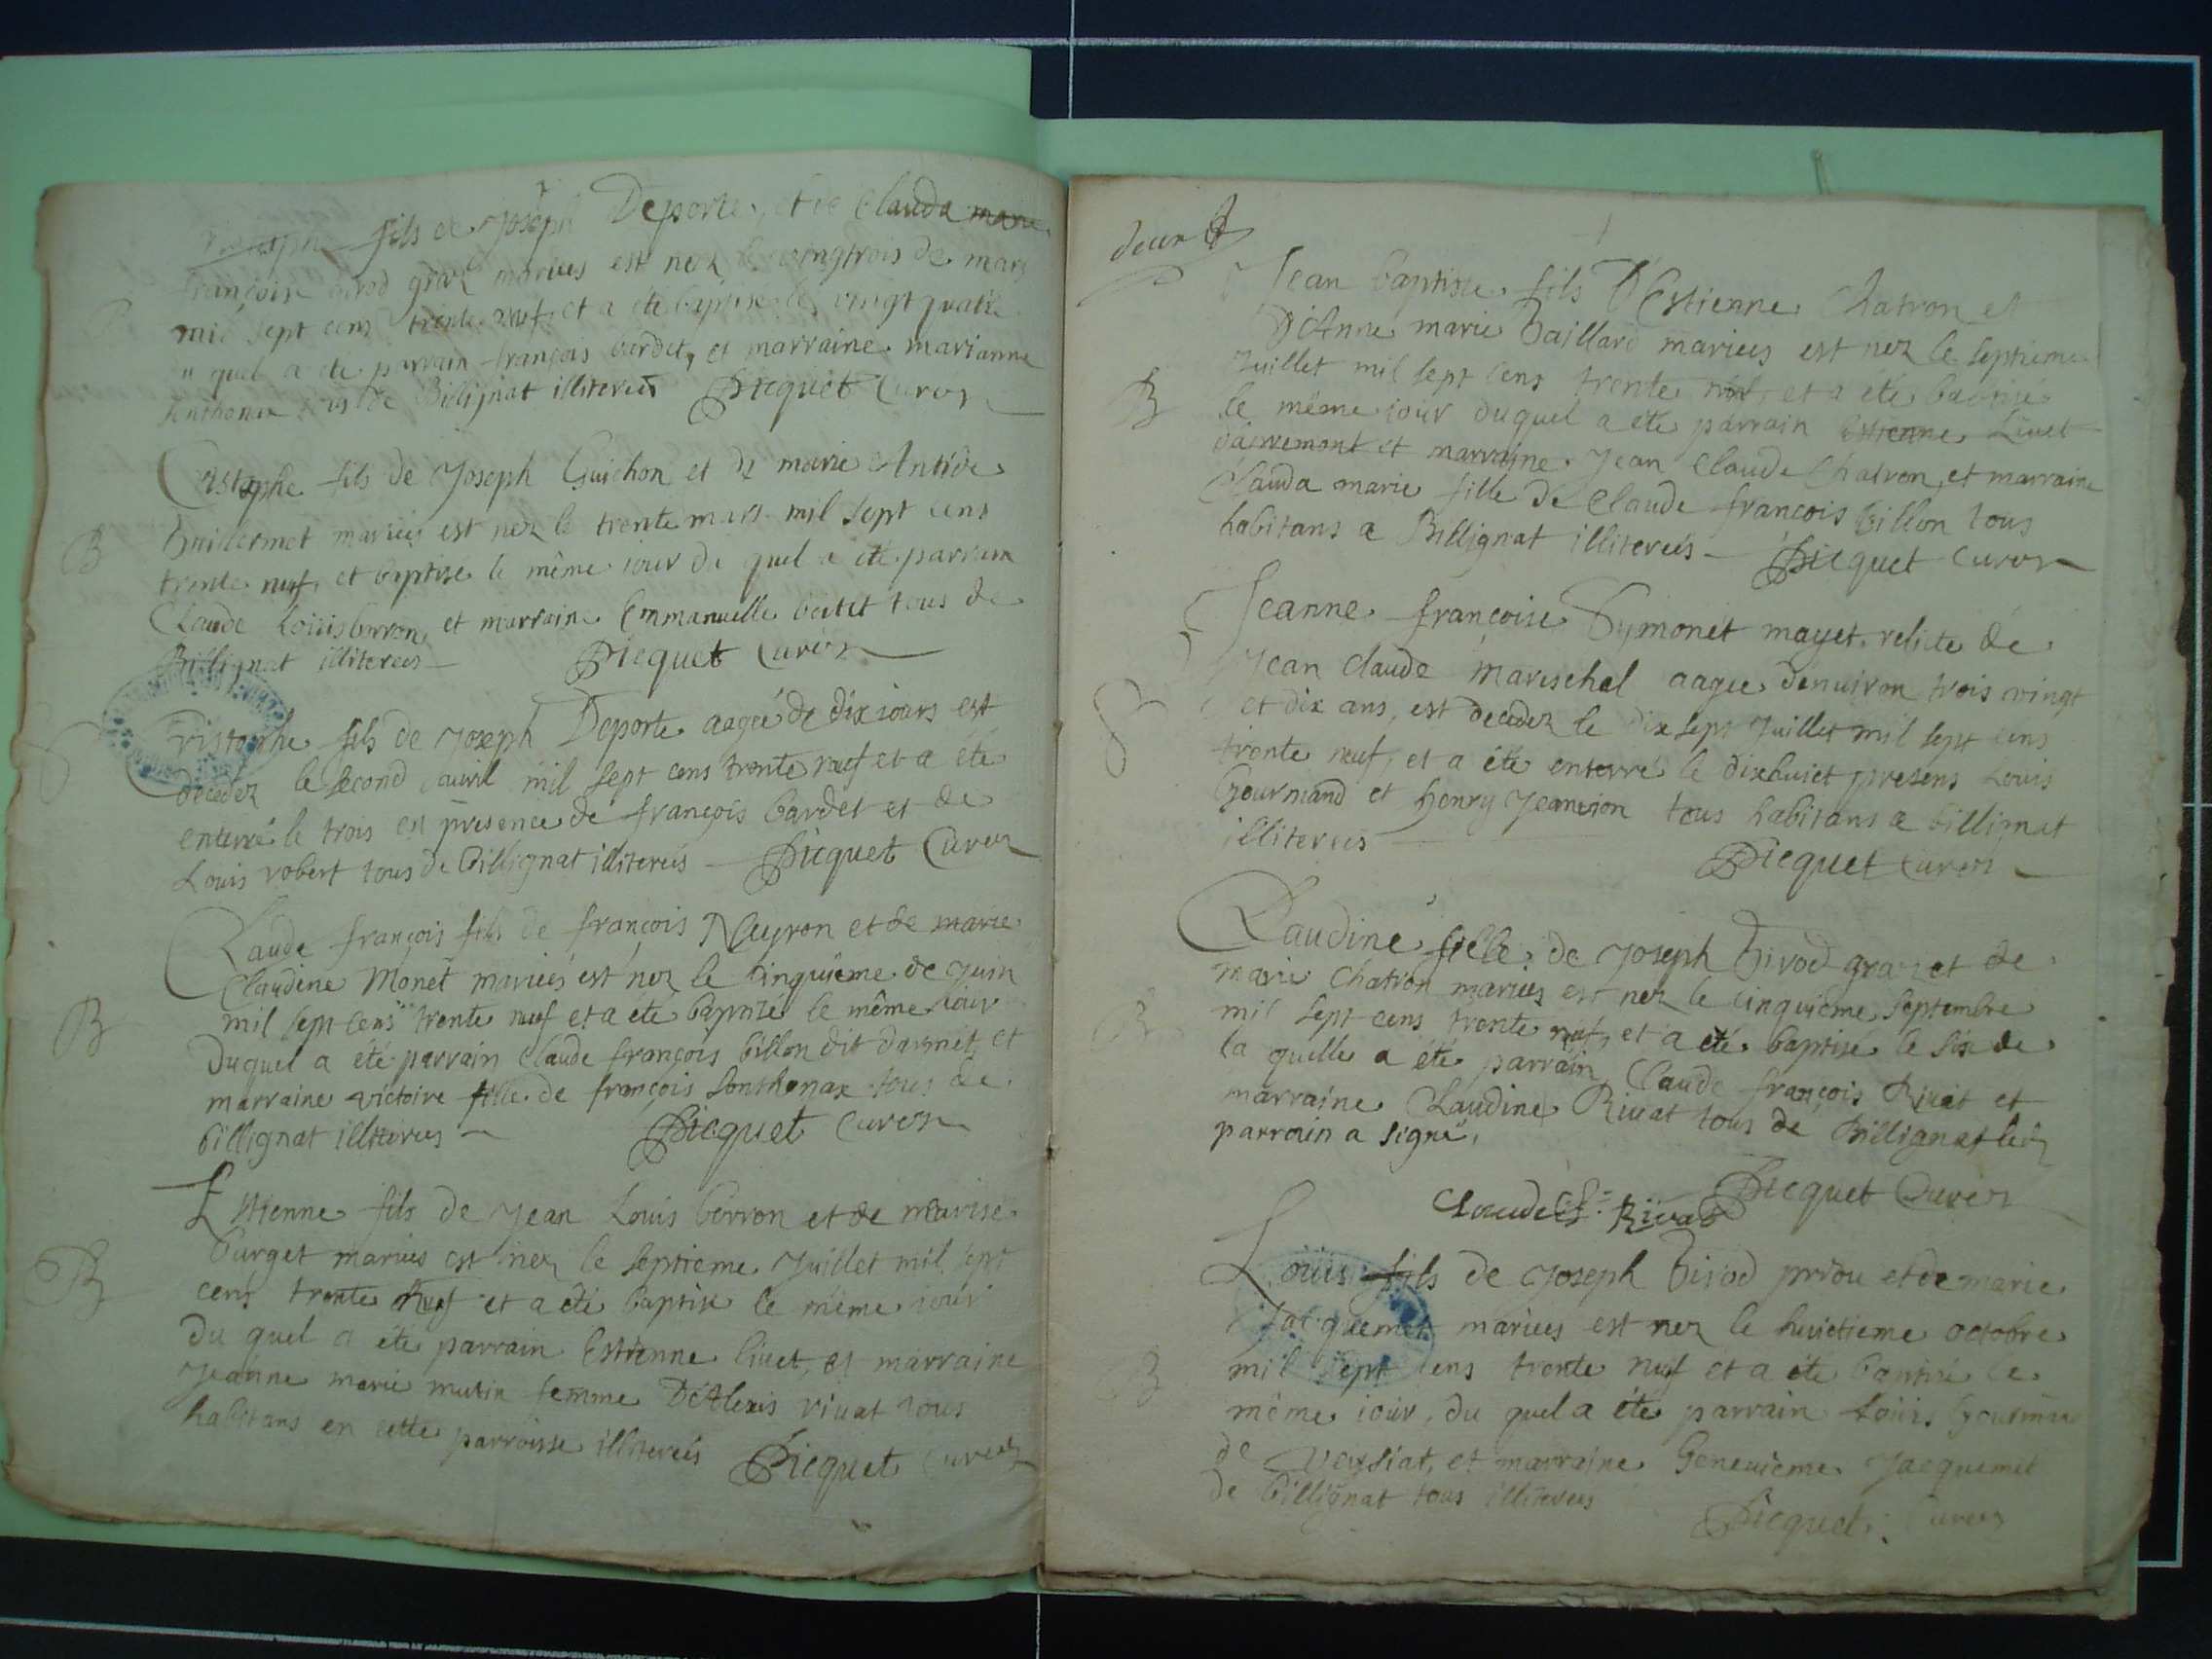 fils de Joseph Deporte, et de Clauda marie
françoise girod graz mariees est nez le vingtrois de mars
mil sept cens trente neuf et a été baptisé le vingt quatre
du quel a été parrain françois bardet, et marraine marianne
sonthonax tous de Billignat illiterees Picquet Curez
Cristophe fils de Joseph Guichon et de marie Antide
Guillermet mariees est nez le trente mars mil sept cens
trente neuf et baptise le même iour du quel a été parrain
Claude Louis berron et marraine Emmanuelle bertet tous de
Billignat illiterees Picquet Curez
B
Cristophe fils de Joseph Deporte aageé de dix iours est
decedez le second auril mil sept cens trente neuf et a été
enterré le trois en presence de françois bardet et de
Louis robert tous de billignat illitereés Picquet Curez
Claude françois fils de françois Neyron et de marie
Claudine Monet marieés est nez le cinquieme de Juin
mil sept cens trente neuf et a été baptizé le même iour
duquel a été parrain Claude françois billon dit darmet et
marraine victoire fille de françois sonthonax tous de
billignat illiterees Picquet Curez
B
Estienne fils de Jean Louis berron et de marise
burget mariees est nez le septieme Juillet mil sept
cens trente neuf et a été baptise le même iour
du quel a été parrain Estienne liuet, et marraine
Jeanne marie mutin femme D'Alexis riuat tous
habitans en cette parroisse illitereés Picquet Curez
B
deux
Jean baptiste fils D'Estienne Chatron et
D'Anne marie Gaillard mariees est nez le septieme
Juillet mil sept cens trente neuf, et a été baptisé
le même iour duquel a été parrain Estienne Liuet
et marraine Jean Claude Chatron, et marraine
Clauda marie fille de Claude françois billon tous
habitans a Billignat illitereés Picquet Curez
B
Jeanne françoise Gymonet mayet relicte de
Jean Claude Mareschal aagee denuiron trois vingt
et dix ans, est decedez le dix sept Juillet mil sept cens
trente neuf, et a été enterré le dixhuict presens Louis
Gourmand et henry Jeantion tous habitans a billignat
illiterees Picquet Curez
Claudine fille de Joseph Girod graz et de
marie Chatron mariees est nez le cinquième septembre
mil sept cens trente neuf, et a été baptisé le six de
la quelle a été parrain Claude françois Riuat et
marraine Claudine Riuat tous de Billignat led.
parrain a signé,
Picquet Curez
Claude f.s Rivat
Loüis fils de Joseph Girod pridu et de marie
Jacquemet mariees est nez le huictieme octobre
mil sept cens trente neuf et a été baptisé le
même iour, du quel a été parrain Loüis
de veysiat, et marraine Geneuieme Jacquemet
de billignat tous illiterees
Picquet Curez
B